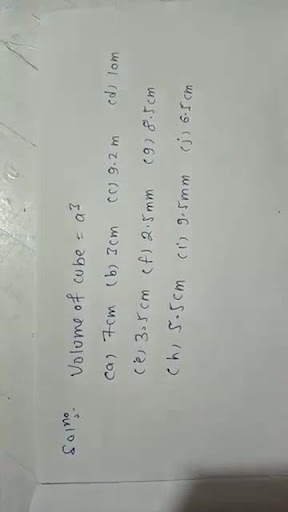 Soln:
Volume of cube = a³
(a) 7cm (b) 3cm (c) 9.2m (d) 10m
(e) 3.5cm (f) 2.5mm (g) 8.5cm
(h) 5.5cm (i) 9.5mm (j) 6.5cm